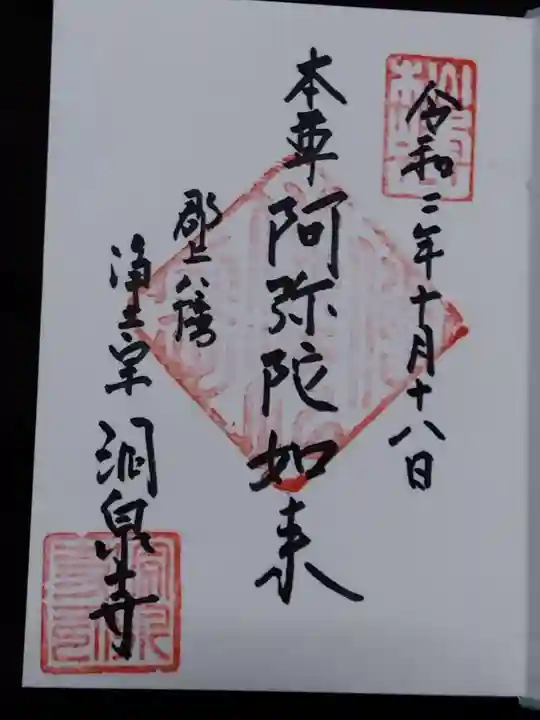 令和二年十月十八日
本尊阿弥陀如来
郡上八幡
浄土宗 洞泉寺